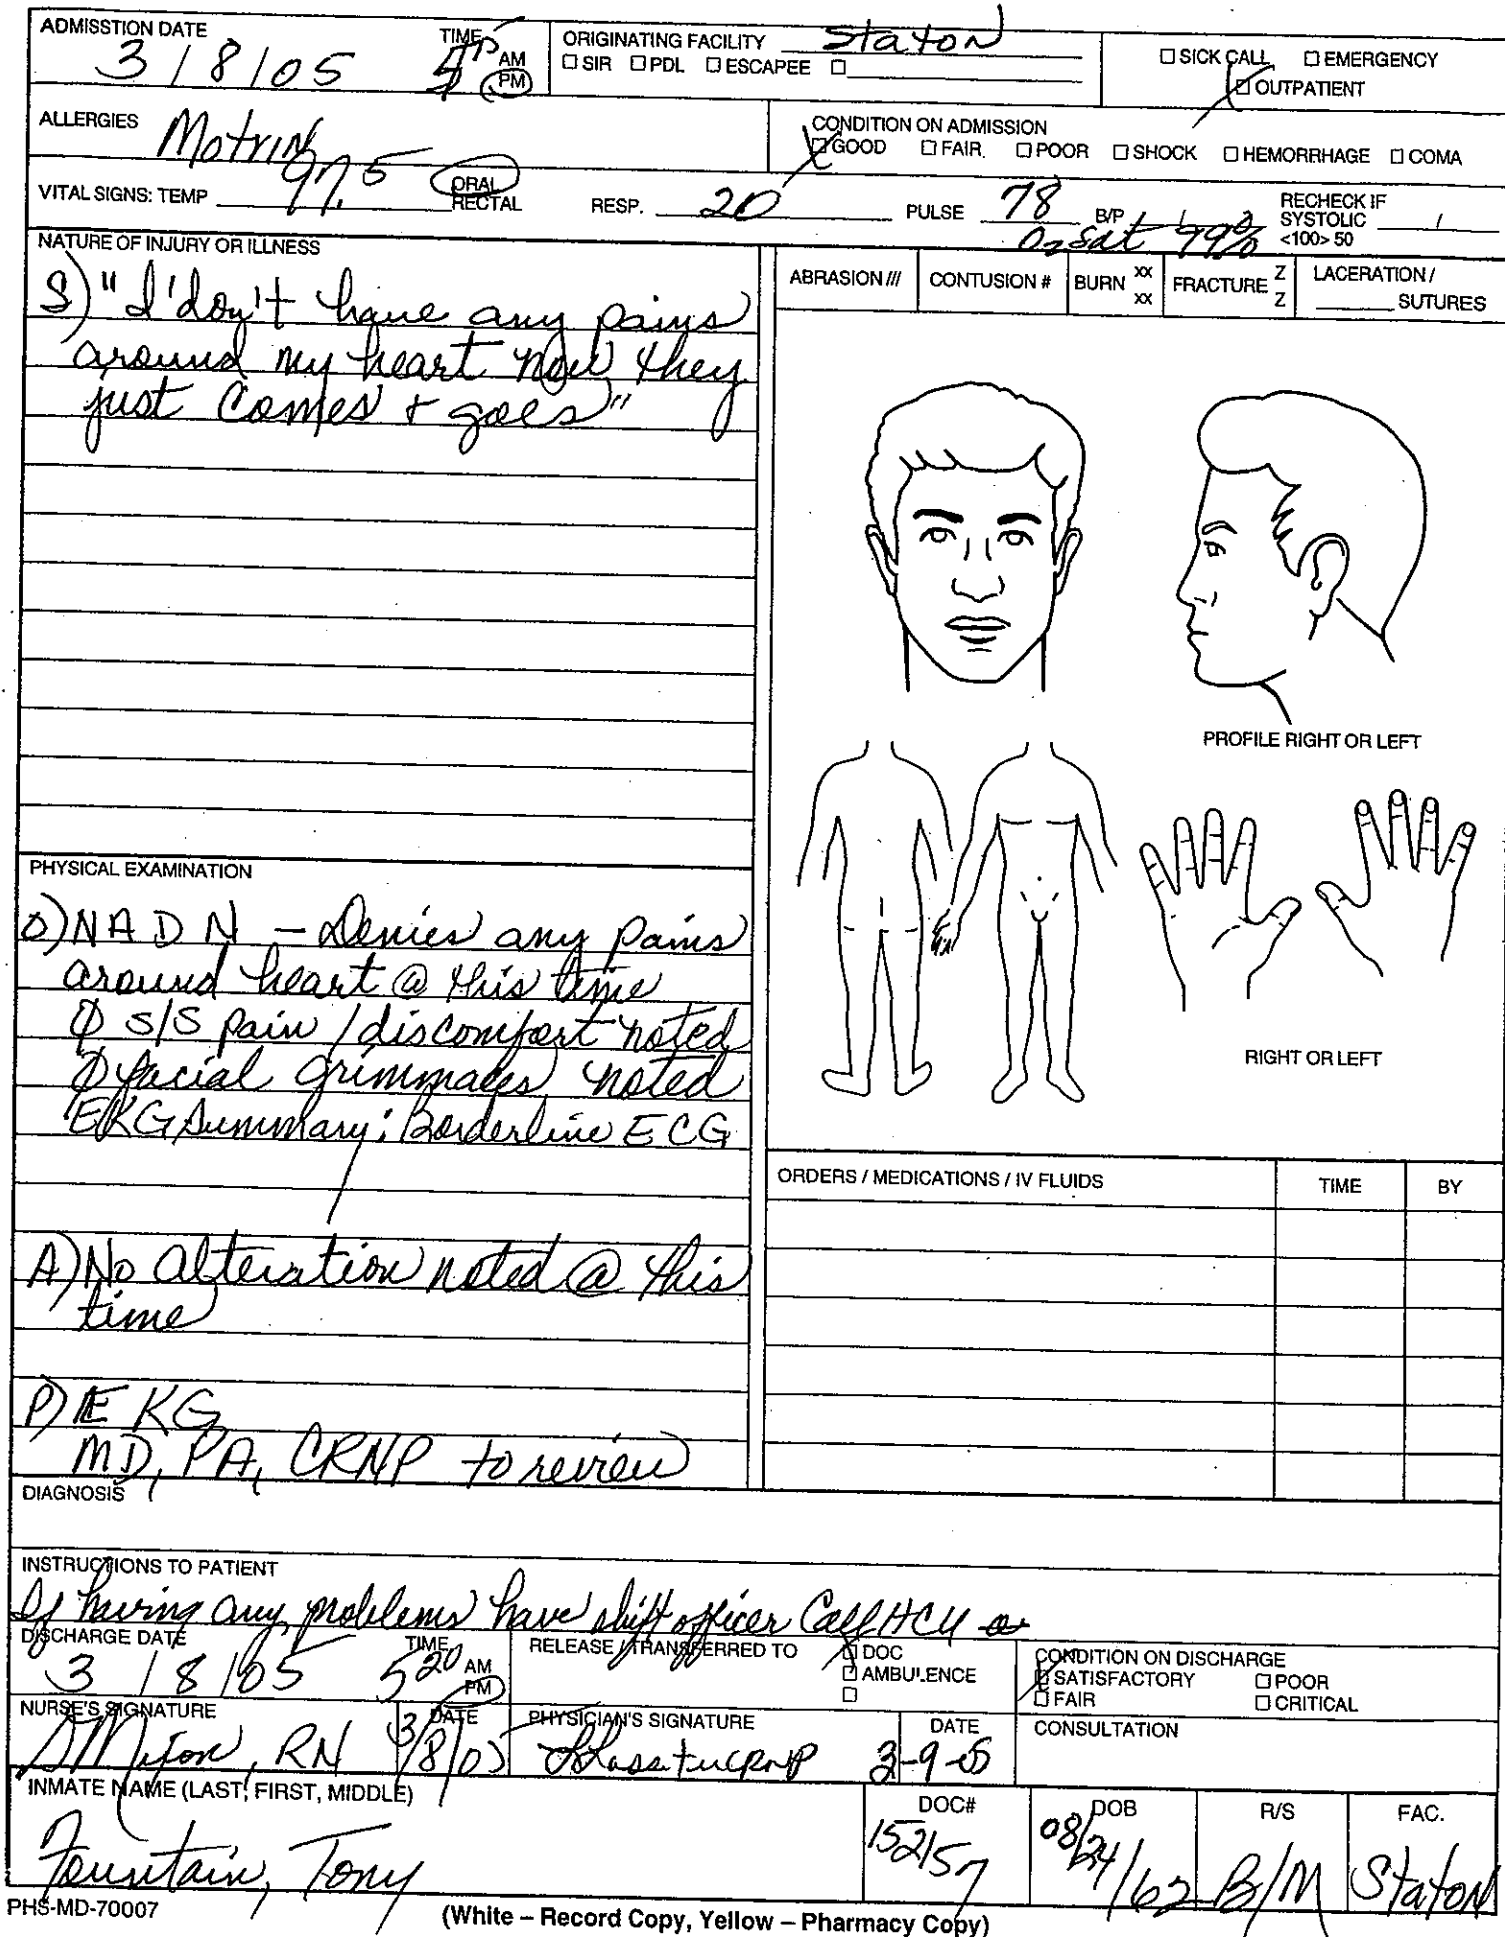 ADMISSTION DATE 3/8/05 TIME 5P AM PM
ORIGINATING FACILITY Staton
□ SIR □ PDL □ ESCAPEE □
□ SICK CALL □ EMERGENCY
□ OUTPATIENT
ALLERGIES Motrin
CONDITION ON ADMISSION
□ GOOD □ FAIR □ POOR □ SHOCK □ HEMORRHAGE □ COMA
VITAL SIGNS: TEMP 97.5 ORAL RECTAL RESP. 20 PULSE 78 B/P / O2 Sat 99% RECHECK IF SYSTOLIC / <100> 50
NATURE OF INJURY OR ILLNESS
S) "I don't have any pains
around my heart now they
just comes + goes"
ABRASION /// CONTUSION # BURN xx xx FRACTURE Z Z LACERATION / SUTURES
PROFILE RIGHT OR LEFT
RIGHT OR LEFT
PHYSICAL EXAMINATION
O) NADN – Denies any pains
around heart @ this time
Ø S/S pain / discomfort noted
Ø facial grimmaces noted
EKG Summary: Borderline ECG
A) No alteration noted @ this
time
P) EKG
MD, PA, CRNP to review
ORDERS / MEDICATIONS / IV FLUIDS TIME BY
DIAGNOSIS
INSTRUCTIONS TO PATIENT
If having any problems have shift officer call HCU
DISCHARGE DATE 3/8/05 TIME 520 AM PM
RELEASE / TRANSFERRED TO □ DOC
□ AMBULENCE
□
CONDITION ON DISCHARGE
□ SATISFACTORY □ POOR
□ FAIR □ CRITICAL
NURSE'S SIGNATURE RN DATE 3/8/05
PHYSICIAN'S SIGNATURE CRNP DATE 3-9-05
CONSULTATION
INMATE NAME (LAST, FIRST, MIDDLE)
Fountain, Tony
DOC# 152157
DOB 08/24/62
R/S B/M
FAC. Staton
PHS-MD-70007
(White – Record Copy, Yellow – Pharmacy Copy)